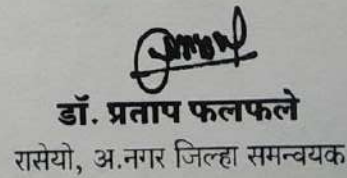 डॉ. प्रताप फलफले
रासेयो, अ.नगर जिल्हा समन्वयक